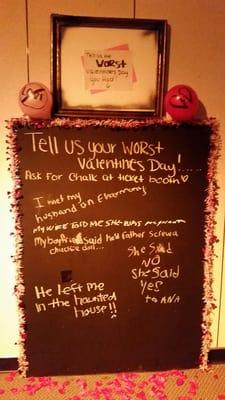 Tell us your
WORST
valentines Day
you Had!
Tell us your worst
valentines Day!.....
Ask For Chalk at ticket booth
I met my
husband on Eharmony
My wife told me she was
My boyfriend said he'd Father
chuckie doll...
She Said
NO
She Said
Yes
to ANA
He left me
in the haunted
house!!